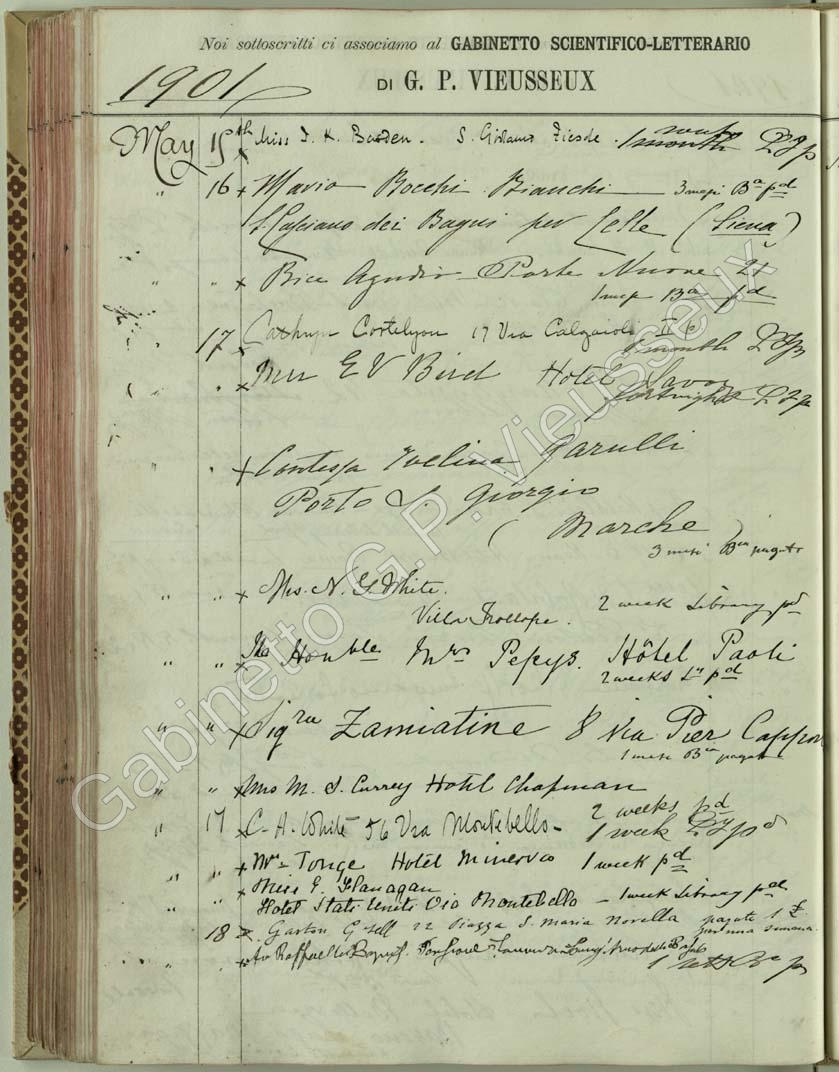 Noi sottoscritti ci associamo al GABINETTO SCIENTIFICO-LETTERARIO
DI G. P. VIEUSSEUX
1901
May 15th x Miss J. K. Burden. S. Girolamo Fiesole. 1 month
" 16 x Mario Bocchi Bianchi 3 mesi Ba pd
S. Casciano dei Bagni per Celle (Siena)
" " x Bice Agudio Porta Nuova 21
1 mese Ba pd
17 x Cortelyou 17 Via Calzaioli
1 month
" x E V Bird Hotel Savoy
fortnight
" " x Contessa Evelina Garulli
Porto S. Giorgio
(Marche)
3 mesi Bca pagato
" " x Mrs. N. G. White.
Villa Trollope. 2 week Library pd
" " x The Honble Mrs Pepys. Hôtel Paoli
2 weeks Ly pd
" " x Sigra Zamiatine 8 Via Pier Capponi
1 mese Ba pagato
" " x Mrs M. J. Currey Hotel Chapman
2 weeks pd
" 17 x C. A. White 56 Via Montebello - 1 week Ly pd
" " x Mrs Tonge Hotel Minerva 1 week pd
" " x Miss E. Flanagan
Hotel Stati Uniti Via Montebello - 1 week Library pd
18 x Gaston 22 Piazza S. Maria Novella pagato 1 £
per una settimana
" x Raffaello Pensione Lung'Arno
1 sett Ba pd
Gabinetto G.P. Vieusseux